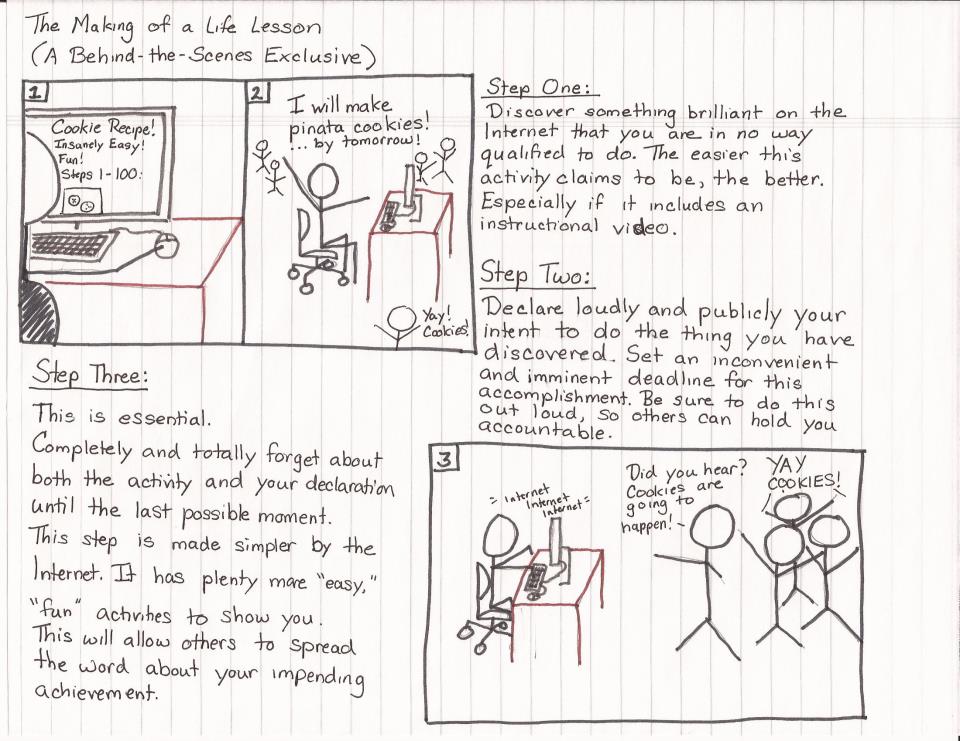 The Making of a Life Lesson
(A Behind-the-Scenes Exclusive)
1
Cookie Recipe!
Insanely Easy!
Fun!
Steps 1-100:
2
I will make
pinata cookies!
!... by tomorrow!
Yay!
Cookies!
Step One:
Discover something brilliant on the
Internet that you are in no way
qualified to do. The easier this
activity claims to be, the better.
Especially if it includes an
instructional video.
Step Two:
Declare loudly and publicly your
intent to do the thing you have
discovered. Set an inconvenient
and imminent deadline for this
accomplishment. Be sure to do this
out loud, so others can hold you
accountable.
Step Three:
This is essential.
Completely and totally forget about
both the activity and your declaration
until the last possible moment.
This step is made simpler by the
Internet. It has plenty more "easy,"
"fun" activities to show you.
This will allow others to spread
the word about your impending
achievement.
3
Internet
Internet
Internet
Did you hear?
Cookies are
going to
happen!
YAY
COOKIES!